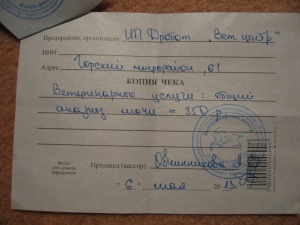 Предприятие, организация ИП Дробот „Вет центр"
ИНН
Адрес Горский микрорайон, 61
КОПИЯ ЧЕКА
Ветеринарные услуги: общий
анализ мочи = 350 р.
Место
для штампа
Продавец (кассир) Овчинникова А.
"6" мая 2013